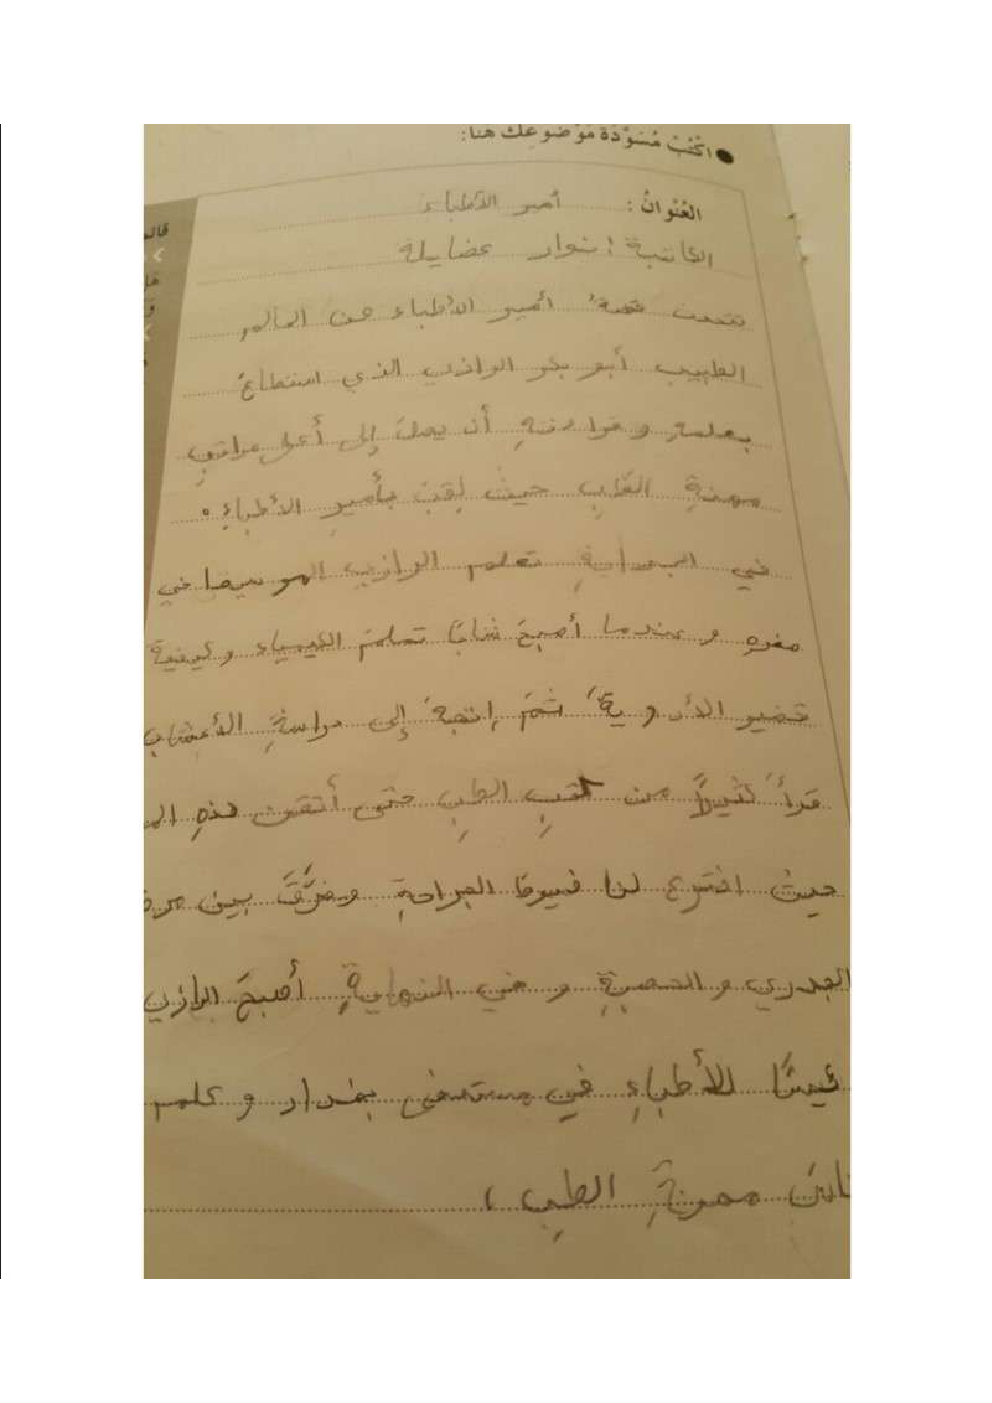 ● اكْتُبْ مُسْوَدَّةَ مَوْضوعِكَ هُنا:
العُنْوانُ: أمير الأطباء
الكاتبة: نوار عضايلة
تتحدث قصةُ أمير الأطباء عن العالم
الطبيب أبو بكر الرازي الذي استطاعَ
بعلمهِ و قراءتهِ أن يصلَ إلى أعلى مراتبِ
مهنةِ الطبِ حيثُ لقبَ بأميرِ الأطباءِ.
في البدايةِ تعلم الرازي الموسيقا في
صغرهِ و عندما أصبحَ شابًا تعلمَ الكيمياء و كيفية
تحضير الأدويةَ ثمَ إتجهَ إلى دراسةِ الأعشاب
قرأَ كثيرًا من كتبِ الطبِ حتى أتقن هذهِ الم
حيث اخترع لنا خيوط الجراحةِ وفرَّقَ بين مرض
الجدري و الحصبةِ و في النهايةِ أصبحَ الرازي
ئيسًا للأطباءِ في مستشفى بغداد و علم
الناسَ مهنةَ الطبِ.
قائم